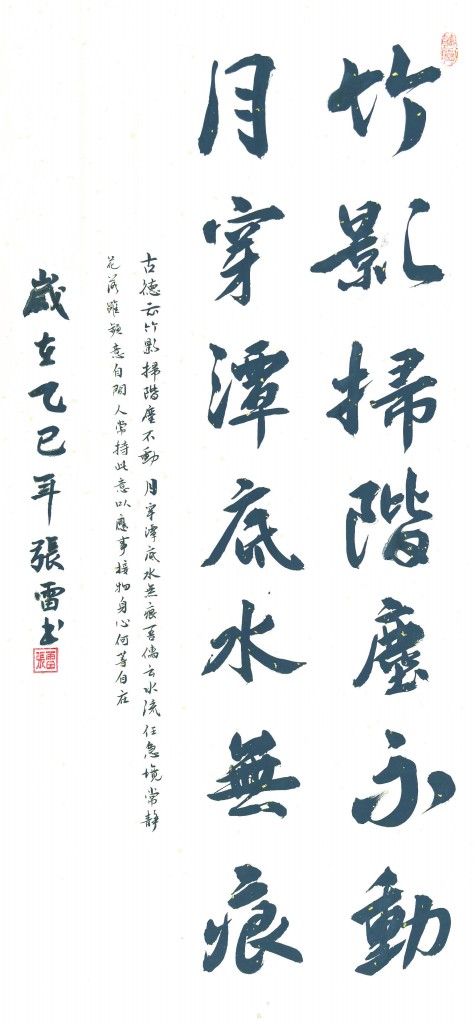 竹影掃階塵不動
月穿潭底水無痕
古德云竹影掃階塵不動月穿潭底水無痕吾儒云水流任急境常静
花落雖頻意自閑人常持此意以應事接物身心何等自在
歲在乙巳年張雷書
張雷